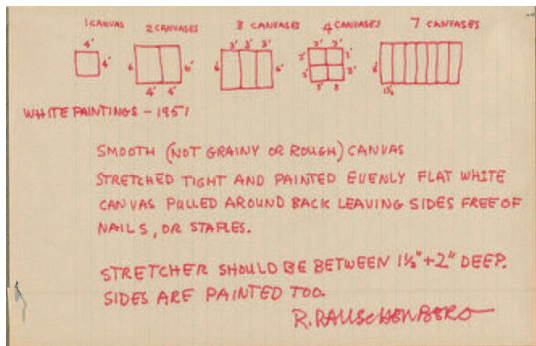 1 CANVAS 2 CANVASES 3 CANVASES 4 CANVASES 7 CANVASES
4' 3' 3' 3' 3' 3'
4' 6' 6' 6' 6' 2' 2' 6'
2' 2'
4' 4' 3' 3' 1½
WHITE PAINTINGS - 1951
SMOOTH (NOT GRAINY OR ROUGH) CANVAS
STRETCHED TIGHT AND PAINTED EVENLY FLAT WHITE
CANVAS PULLED AROUND BACK LEAVING SIDES FREE OF
NAILS, OR STAPLES.
STRETCHER SHOULD BE BETWEEN 1½" + 2" DEEP.
SIDES ARE PAINTED TOO.
R. RAUSCHENBERG